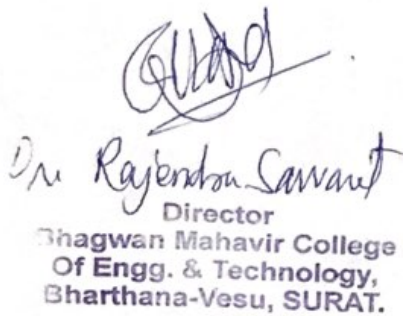 Dr. Rajendra Sawant
Director
Bhagwan Mahavir College
Of Engg. & Technology,
Bharthana-Vesu, SURAT.